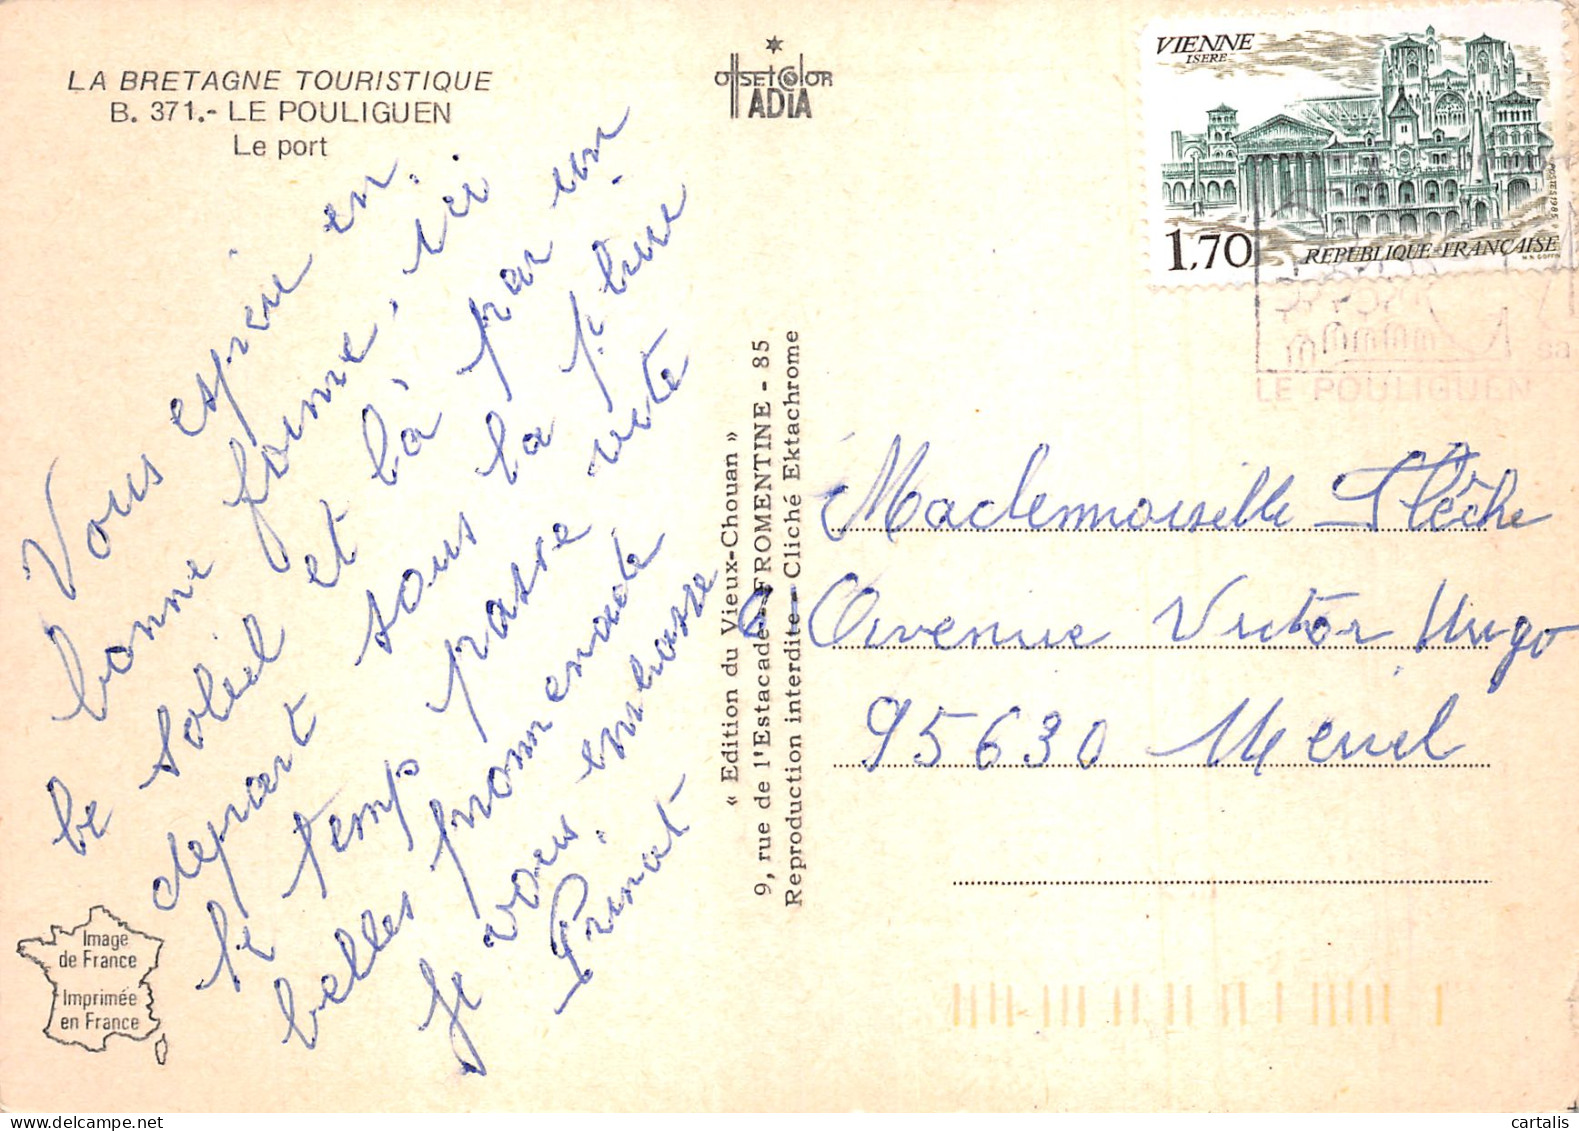 LA BRETAGNE TOURISTIQUE
B. 371.- LE POULIGUEN
Le port
OffSEt COlOR
ADIA
VIENNE
ISERE
POSTES 1985
1,70
REPUBLIQUE-FRANÇAISE
LE POULIGUEN
Vous espère en
bonne forme, ici
le soleil et là par un
départ sous la pluie
le temps passe vite
belles promenade
Je vous embrasse
« Edition du Vieux-Chouan »
9, rue de l'Estacade - FROMENTINE - 85
Reproduction interdite - Cliché Ektachrome
Mademoiselle Flêche
6 Avenue Victor Hugo
95630 Meriel
Image
de France
Imprimée
en France
cartalis